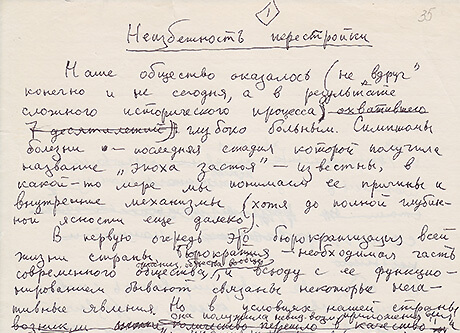 1
35
Неизбежность перестройки
Наше общество оказалось (не „вдруг”
конечно и не сегодня, а в результате
сложного исторического процесса) охватившего
7 десятилетий) глубоко больным. Симптомы
болезни — последняя стадия которой получила
название „эпоха застоя” — известны, в
какой-то мере мы понимаем ее причины и
внутренние механизмы (хотя до полной глубин-
ной ясности еще далеко).
В первую очередь это бюрократизация всей
жизни страны. Бюрократия — необходимая часть
современного общества, и всюду с ее функцио-
нированием бывают связаны некоторые нега-
тивные явления. Но в условиях нашей страны
она получила
количество перешло в качество